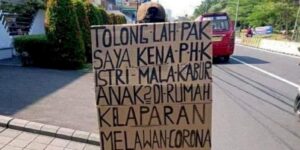 TOLONG-LAH-PAK
SAYA KENA-PHK
ISTRI-MALA-KABUR
ANAK2-DI-RUMAH
KELAPARAN
MELAWAN-CORONA